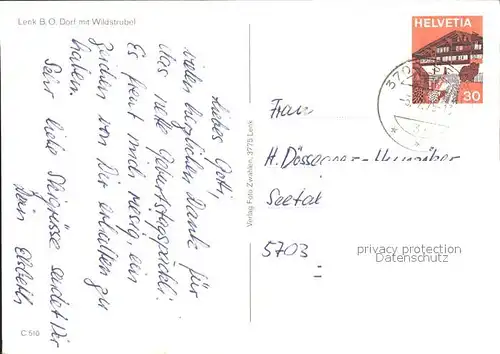 Lenk B.O. Dorf mit Wildstrubel
Liebes Gotti,
vielen herzlichen Dank für
das nette Geburtstagspäckli.
Es freut mich riesig, ein
Zeichen von Dir erhalten zu
haben.
Sehr liebe Skigrüsse sendet Dir
Dein Elsbeth
C 510
Verlag Foto Zwahlen, 3775 Lenk
HELVETIA
30
Frau
H. Dössegger-
Seetal
5703
privacy protection
Datenschutz